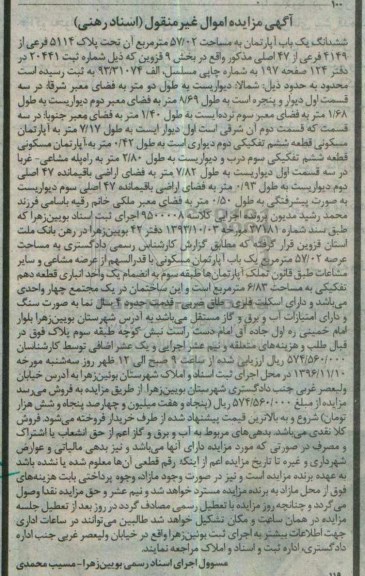 ۱۰۰
آگهی مزایده اموال غیرمنقول (اسناد رهنی)
ششدانگ یک باب آپارتمان به مساحت ۵۷/۰۲ مترمربع آن تحت پلاک ۵۱۱۴ فرعی از
۴۱۴۹ فرعی از ۴۷ اصلی مذکور واقع در بخش ۹ قزوین که ذیل شماره ثبت ۲۰۴۴۱ در
دفتر ۱۲۴ صفحه ۱۹۷ به شماره چاپی مسلسل الف ۹۳/۳۱۰۷۴ به ثبت رسیده است
محدود به حدود ذیل: شمالا: دیواریست به طول دو متر به فضای معبر شرقا: در سه
قسمت اول دیوار و پنجره است به طول ۸/۶۹ متر به فضای معبر دوم دیواریست به طول
۱/۶۸ متر به فضای معبر سوم نرده ایست به طول ۱/۴۰ متر به فضای معبر جنوبا: در سه
قسمت که قسمت دوم آن شرقی است اول دیوار ایست به طول ۷/۱۷ متر به آپارتمان
مسکونی قطعه ششم تفکیکی دوم دیواری است به طول ۰/۴۲ متر به آپارتمان مسکونی
قطعه ششم تفکیکی سوم درب و دیواریست به طول ۲/۸۰ متر به راه پله مشاعی- غربا
در سه قسمت اول دیواریست به طول ۷/۸۲ متر به فضای اراضی باقیمانده ۴۷ اصلی
دوم دیواریست به طول ۰/۹۳ متر به فضای اراضی باقیمانده ۴۷ اصلی سوم دیواریست
به صورت پیشرفتگی به طول ۰/۵۰ متر به فضای معبر ملکی خانم رقیه باسامی فرزند
محمد رشید مدیون پرونده اجرایی کلاسه ۹۵۰۰۰۰۸ اجرای ثبت اسناد بویین زهرا که
طبق سند شماره ۳۷۱۸۱ مورخه ۱۳۹۳/۱۰/۰۳ دفتر ۴۲ بویین زهرا در رهن بانک ملت
استان قزوین قرار گرفته که مطابق گزارش کارشناس رسمی دادگستری به مساحت
عرصه ۵۷/۰۲ مترمربع یک باب آپارتمان مسکونی با قدرالسهم از عرصه مشاعی و سایر
مشاعات طبق قانون تملک آپارتمان ها طبقه سوم به انضمام یک واحد انباری قطعه دهم
تفکیکی به مساحت ۶/۸۳ مترمربع است و این ساختمان در یک مجتمع چهار واحدی
می باشد و دارای اسکلت فلزی - طاق ضربی - قدمت حدود ۴ سال نما به صورت سنگ
و دارای امتیازات آب و برق و گاز مستقل می باشد به آدرس شهرستان بویین زهرا بلوار
امام خمینی ره اول جاده آق امام دست راست نبش کوچه طبقه سوم پلاک فوق در
قبال طلب و هزینه های متعلقه و نیم عشر اجرایی و یک عشر اضافی توسط کارشناسان
۵۷۴/۵۶۰/۰۰۰ ریال ارزیابی شده از ساعت ۹ صبح الی ۱۲ ظهر روز سه شنبه مورخه
۱۳۹۶/۱۱/۱۰ در محل اجرای ثبت اسناد و املاک شهرستان بوئین زهرا به آدرس خیابان
ولیعصر غربی جنب دادگستری شهرستان بویین زهرا از طریق مزایده به فروش می رسد
مزایده از مبلغ ۵۷۴/۵۶۰/۰۰۰ ریال (پنجاه و هفت میلیون و چهارصد پنجاه و شش هزار
تومان) شروع و به بالاترین قیمت پیشنهاد شده از طرف خریدار فروخته می شود. فروش
کلا نقدی می باشد. بدهی های مربوط به آب و برق و گاز اعم از حق انشعاب یا اشتراک
و مصرف در صورتی که مورد مزایده دارای آنها می باشد و نیز بدهی مالیاتی و عوارض
شهرداری و غیره تا تاریخ مزایده اعم از اینکه رقم قطعی آن ها معلوم شده یا نشده باشد
به عهده برنده مزایده است و نیز در صورت وجود مازاد، وجوه پرداختی بابت هزینه های
فوق از محل مازاد به برنده مزایده مسترد خواهد شد و نیم عشر و حق مزایده نقدا وصول
می گردد و چنانچه روز مزایده با تعطیل رسمی مصادف گردد در روز بعد از تعطیل جلسه
مزایده در همان ساعت و مکان تشکیل خواهد شد طالبین می توانند در ساعات اداری
جهت اطلاعات بیشتر به اجرای ثبت بوئین زهرا واقع در خیابان ولیعصر غربی جنب اداره
دادگستری، اداره ثبت و اسناد و املاک مراجعه نمایند.
مسوول اجرای اسناد رسمی بویین زهرا- مسیب محمدی